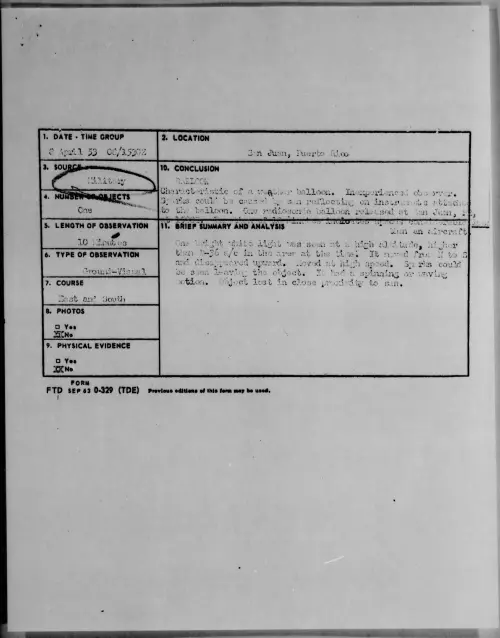 1. DATE - TIME GROUP
8 April 53 08/1530Z
2. LOCATION
San Juan, Puerto Rico
3. SOURCE
Military
10. CONCLUSION
BALLOON
Characteristic of a weather balloon. Inexperienced observer.
Sparks could be caused by sun reflecting on instruments attached
to the balloon. One radiosonde balloon released at San Juan,
4. NUMBER OF OBJECTS
One
than an aircraft
5. LENGTH OF OBSERVATION
10 Minutes
11. BRIEF SUMMARY AND ANALYSIS
One bright white light was seen at a high altitude, higher
than B-36 a/c in the area at the time. It moved from N to S
and disappeared upward. Moved at high speed. Sparks could
be seen leaving the object. It had a spinning or waving
motion. Object lost in close proximity to sun.
6. TYPE OF OBSERVATION
Ground-Visual
7. COURSE
East and South
8. PHOTOS
□ Yes
XX No
9. PHYSICAL EVIDENCE
□ Yes
XX No
FORM
FTD SEP 63 0-329 (TDE) Previous editions of this form may be used.